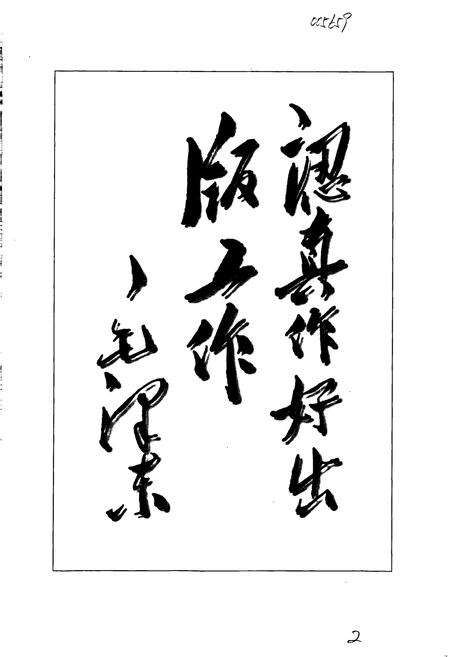 005659
認真作好出
版工作
毛澤東
2